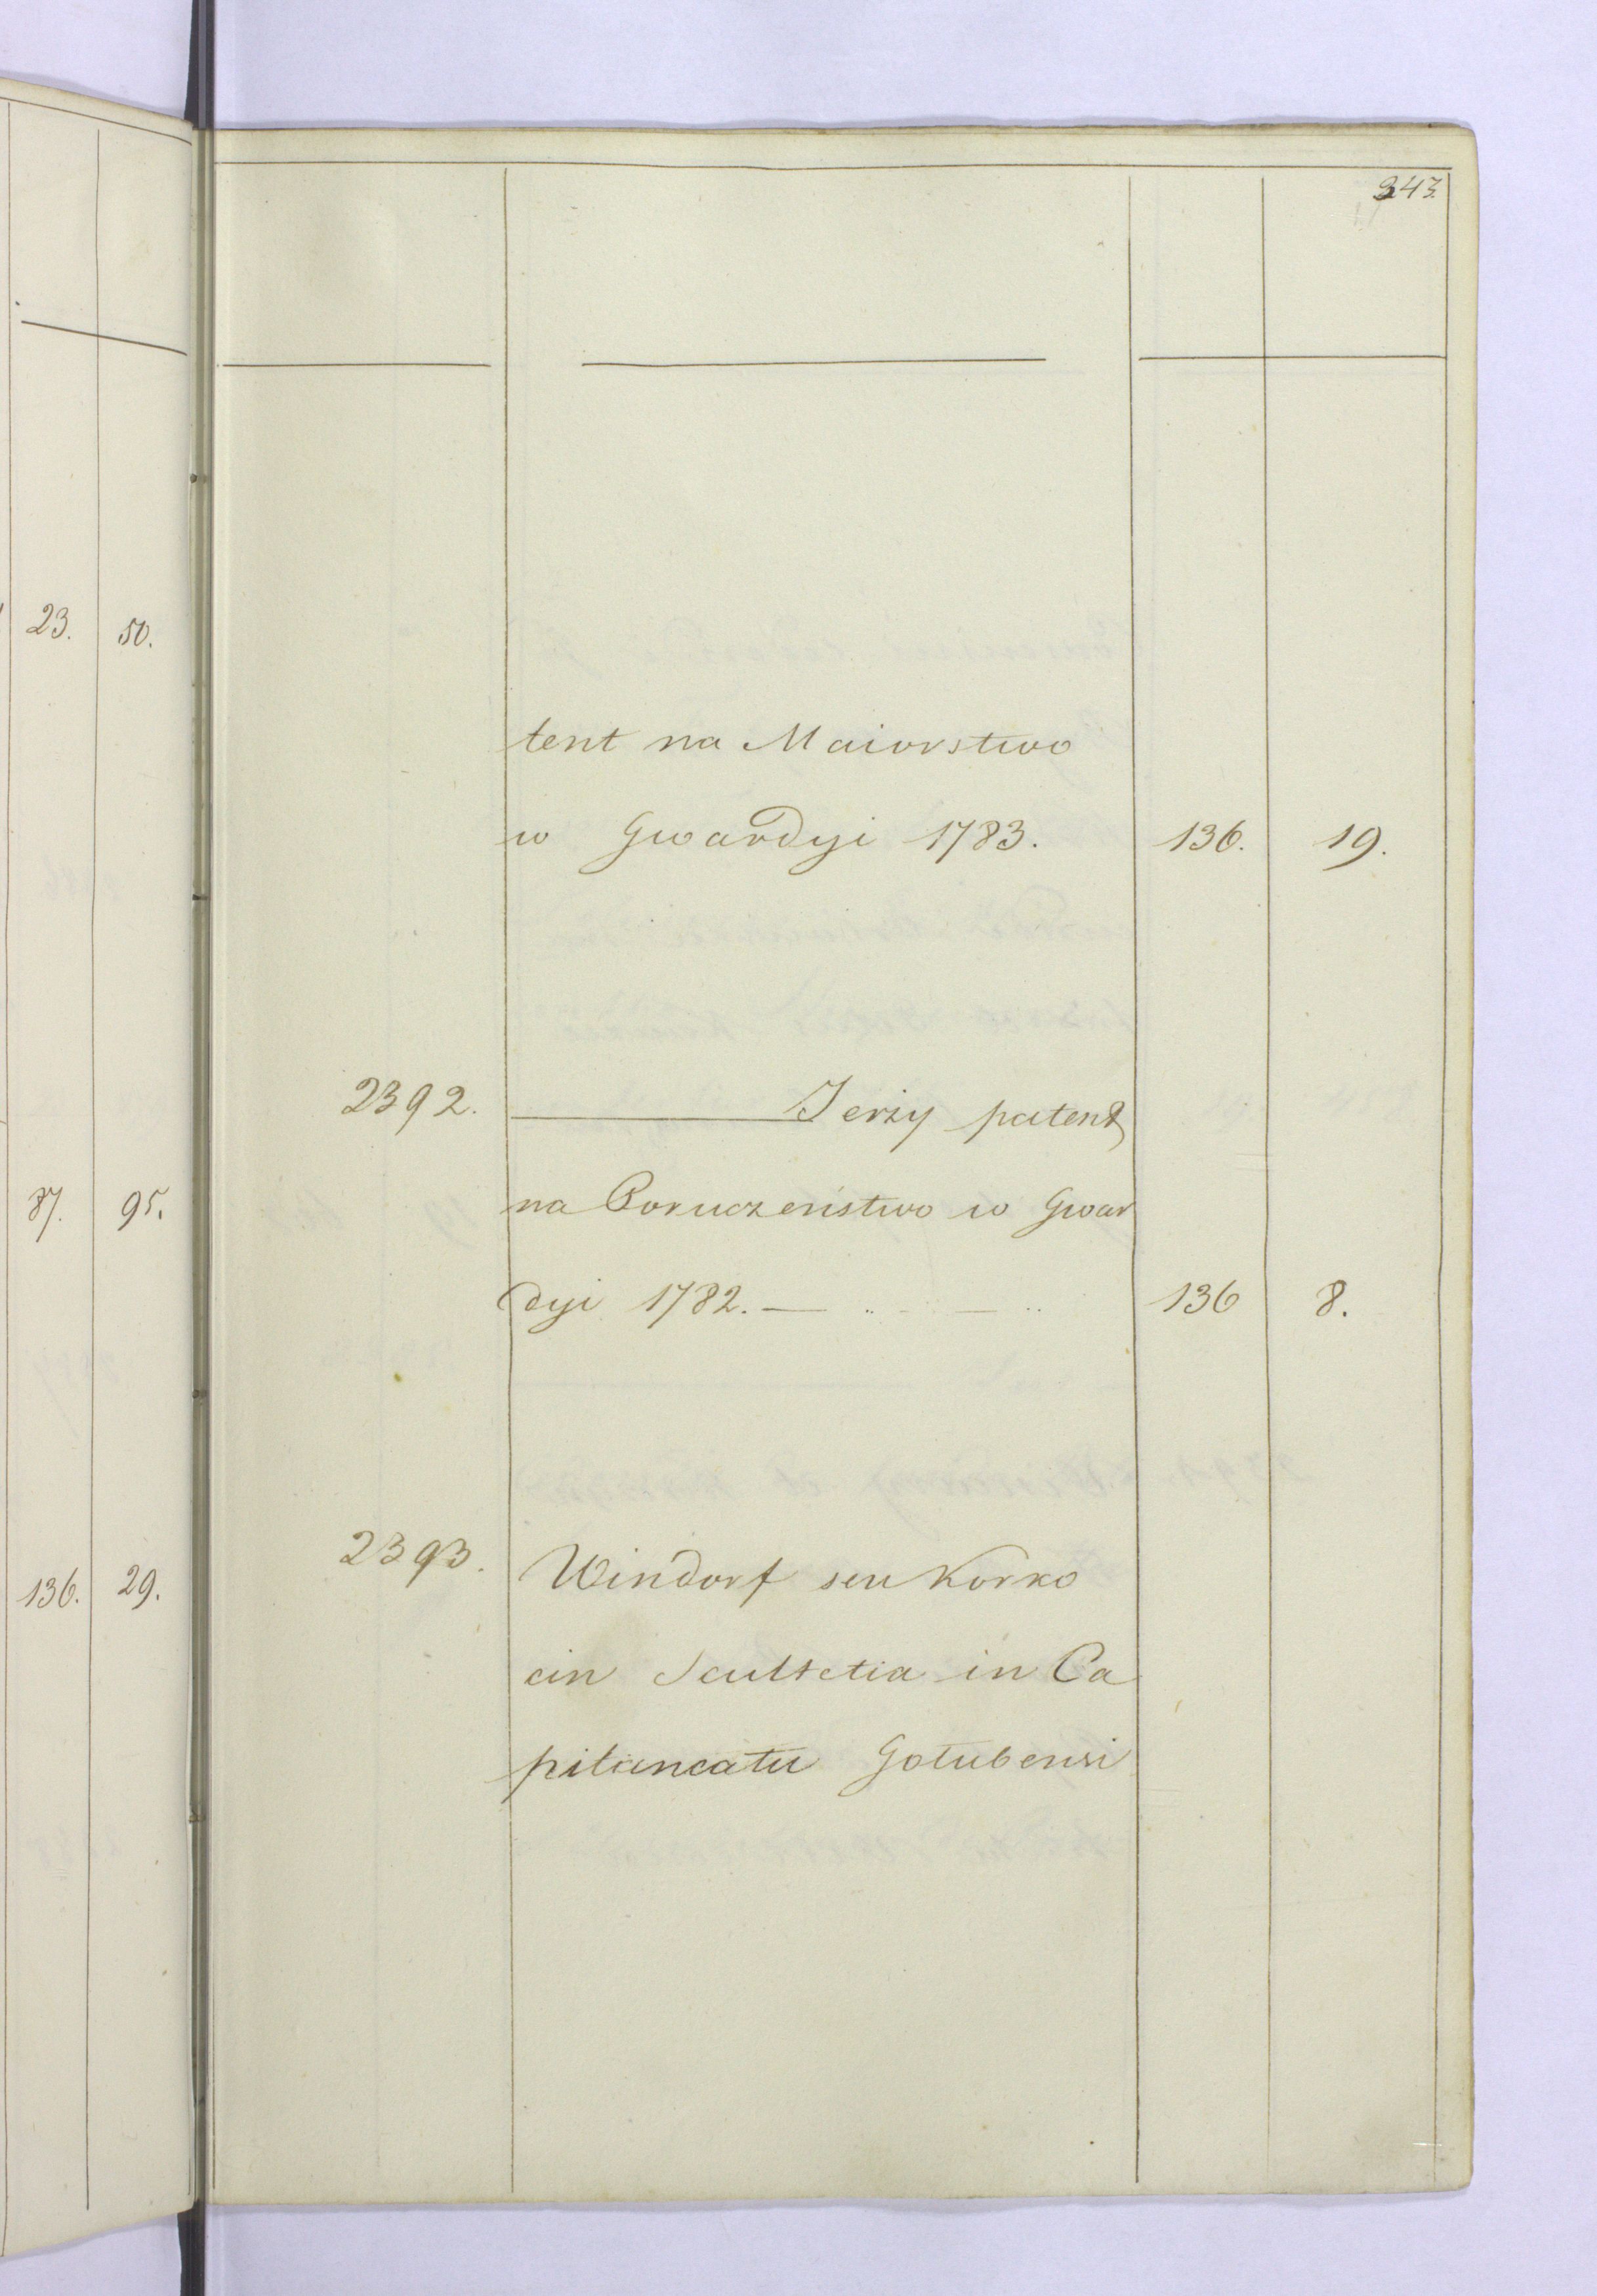 343.
23. 50.
tent na Maiorstwo
w Gwardyi 1783. 136. 19.
2392. Jerzy patent
87. 95. na Poruczeństwo w Gwar
dyi 1782. — .. - — .. 136 8.
2393. Windorf seu Korko
136. 29.
cin Scultetia in Ca
pitaneatu Golubensi